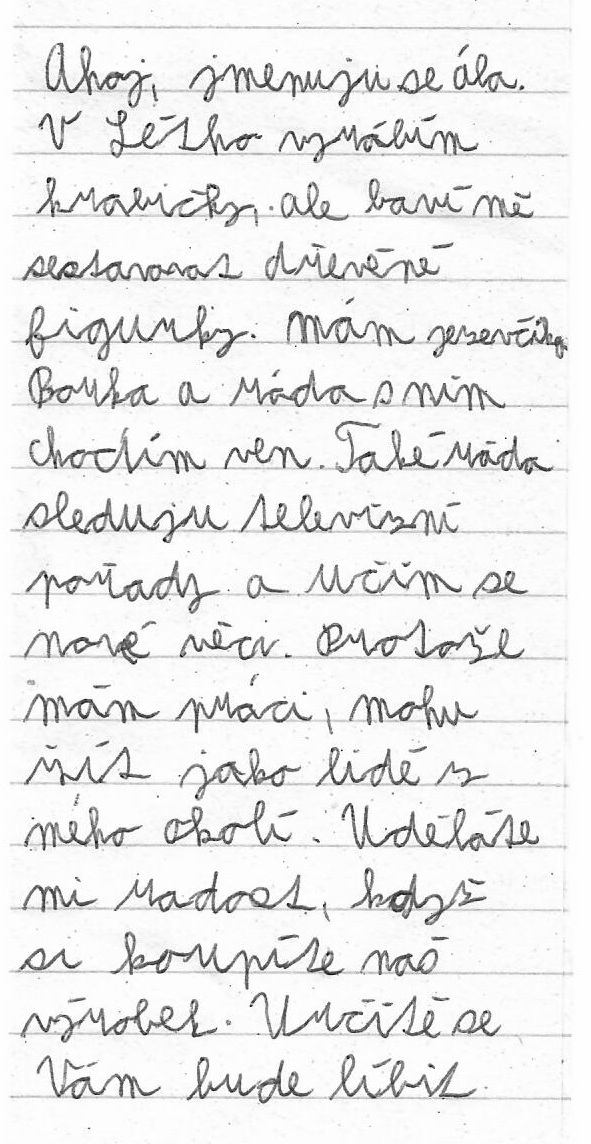 Ahoj, jmenuju se Ála.
V Létho vyrábím
krabičky, ale baví mě
sestavovat dřevěné
figurky. Mám jezevčíka
Borka a ráda s ním
chodím ven. Také ráda
sleduju televizní
pořady a učím se
nové věci. Protože
mám práci, mohu
žít jako lidé z
mého okolí. Uděláte
mi radost, když
si koupíte náš
výrobek. Určitě se
Vám bude líbit.